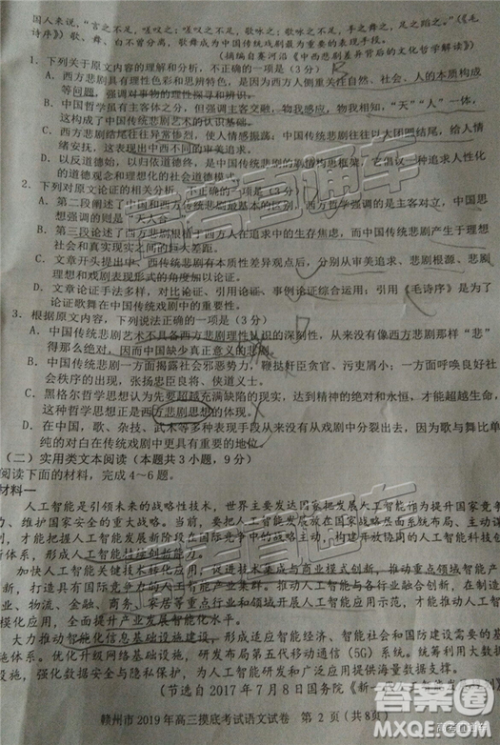 国人来说，“言之不足，嗟叹之；嗟叹之不足，咏歌之；咏歌之不足，手之舞之，足之蹈之。”（《毛
诗序》）歌、舞、白不曾分离，歌舞成为中国传统戏剧最为重要的表现手段。
（摘编自赛河沿《中西悲剧差异背后的文化哲学解读》）
1．下列关于原文内容的理解和分析，不正确的一项是（3分）
A．西方悲剧具有理性色彩和思辨性，这是因为西方人侧重关注自然、社会、人的本质构成
等问题，强调对事物的理性推导和辨识。
B．中国哲学强调主客体之分，但因为强调主客体之间的相互交融，“天”“人”一体，
这构成了中国传统悲剧艺术的认识基础。
C．西方悲剧结尾往往异常惨烈，使人情感振摄；中国传统悲剧往往以大团圆结尾，给人情
绪安抚，这表现出中西不同的审美追求。
D．以反道德始，以归依道德终，是中国传统悲剧的叙述模式，它蕴涵着一种追求人性化
的道德观念和理想化的社会道德
2．下列对原文论证的相关分析，不正确的一项是（3分）
A．第二段阐述了中西传统悲剧最本质的区别，西方哲学强调的是主客二分，中国思
想强调的则是“天人合一”
B．第三段论述了西方悲剧艺术在追求中的生存焦虑，而中国传统戏剧产生于理想
社会和真实现实之间的巨大差异。
C．文章在阐明中西悲剧有本质性差异观点后，分别从悲剧的根源、悲剧精神、悲剧
理想和戏剧表现形式的角度加以论证。
D．文章论证手法多样，对比论证、引用论证、事例论证综合运用；引用《毛诗序》是为了
论证歌舞在中国戏剧中的重要地位。
3．根据原文内容，下列说法正确的一项是（3分）
A．中国传统悲剧艺术不具备西方悲剧理性认识的深刻性，从来没有像西方悲剧那样“悲”
得那么绝对，因而中国缺少真正意义的悲剧
B．中国传统悲剧一方面揭露社会邪恶势力，鞭挞奸臣贪官、污吏屑小；一方面呼唤良好社
会秩序的出现，张扬忠臣良将、侠道义士。
C．黑格尔哲学思想认为先要超越充满缺陷的日常，然后才能达到精神的绝对和永恒，
这种哲学思想正是西方悲剧思想的体现。
D．在中国，歌、杂技、武术等形式从来没有出现在戏剧中，戏剧中更强调的是歌舞与单
纯的对白在传统戏剧中具有重要的地位。
（二）实用类文本阅读（本题共3小题，9分）
阅读下面的材料，完成4～6题。
材料一
人工智能是引领未来的战略性技术，世界主要发达国家把发展人工智能作为提升国家竞
力、维护国家安全的重大战略。当前，
才能把握人工智能发展新阶段在国际竞争中的战略主动，
新引擎，形成人工智能竞争新优势。
加快人工智能关键技术转化应用，促进技术集成与商业模式创新，推动重点领域智能产品
新，打造具有国际竞争力的人工智能产业集群。推动人工智能与各行业融合创新，在制造、
业、物流、金融、商务、家居等重点行业和领域开展人工智能应用示范，
模化应用，全面提升产业发展智能化水平。
大力推动智能化信息基础设施建设，形成适应智能经济、智能社会和国防建设需要的基
体系。优化升级网络基础设施，研发布局第五代移动通信（5G）系统。
安全与隐私保护，为人工智能研发和广泛应用提供海量数据支撑。
（节选自2017年7月8日国务院《新一代人
赣州市2019年高三摸底考试语文试卷 第2页（共8页）